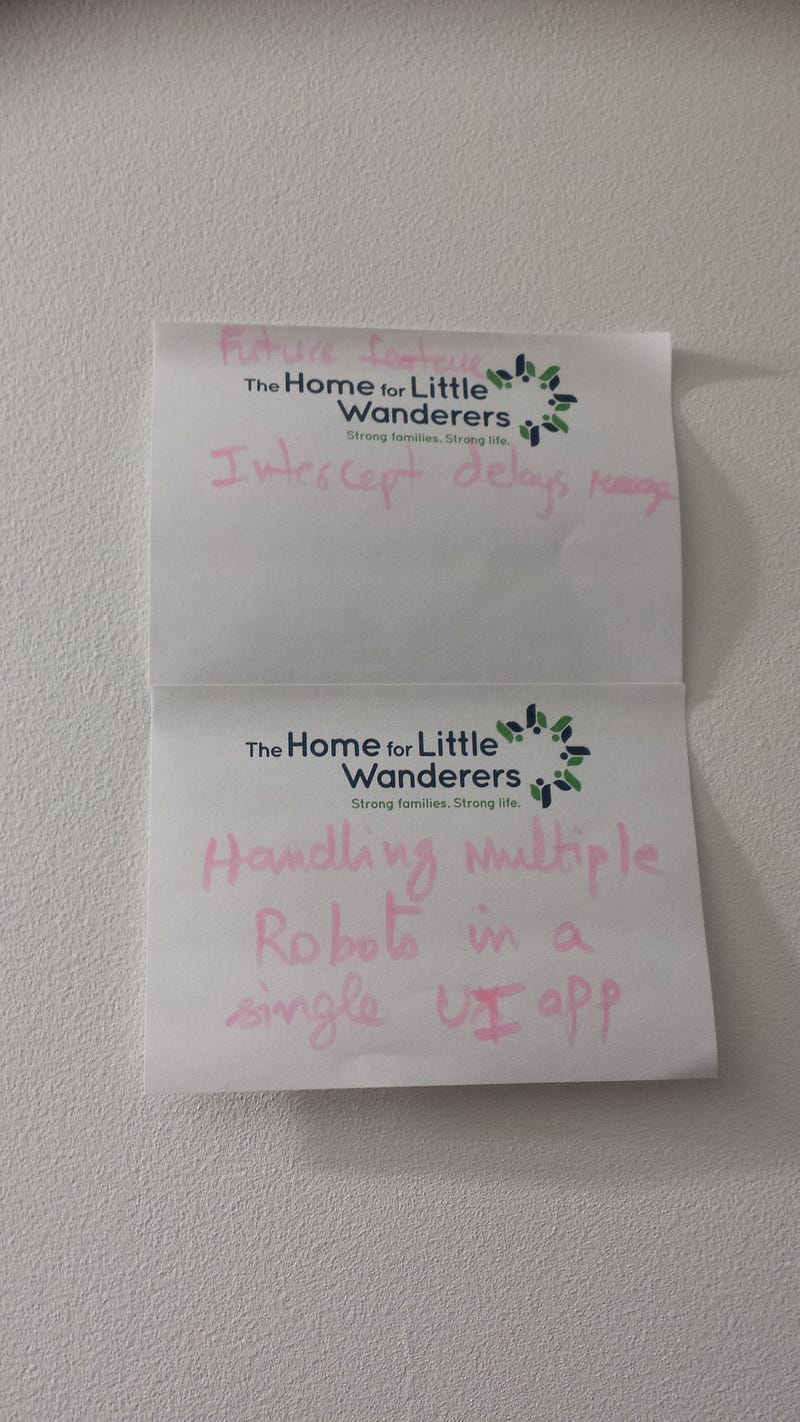 Future feature
The Home for Little
Wanderers
Strong families. Strong life.
Intercept delays
The Home for Little
Wanderers
Strong families. Strong life.
Handling Multiple
Robots in a
single UI app